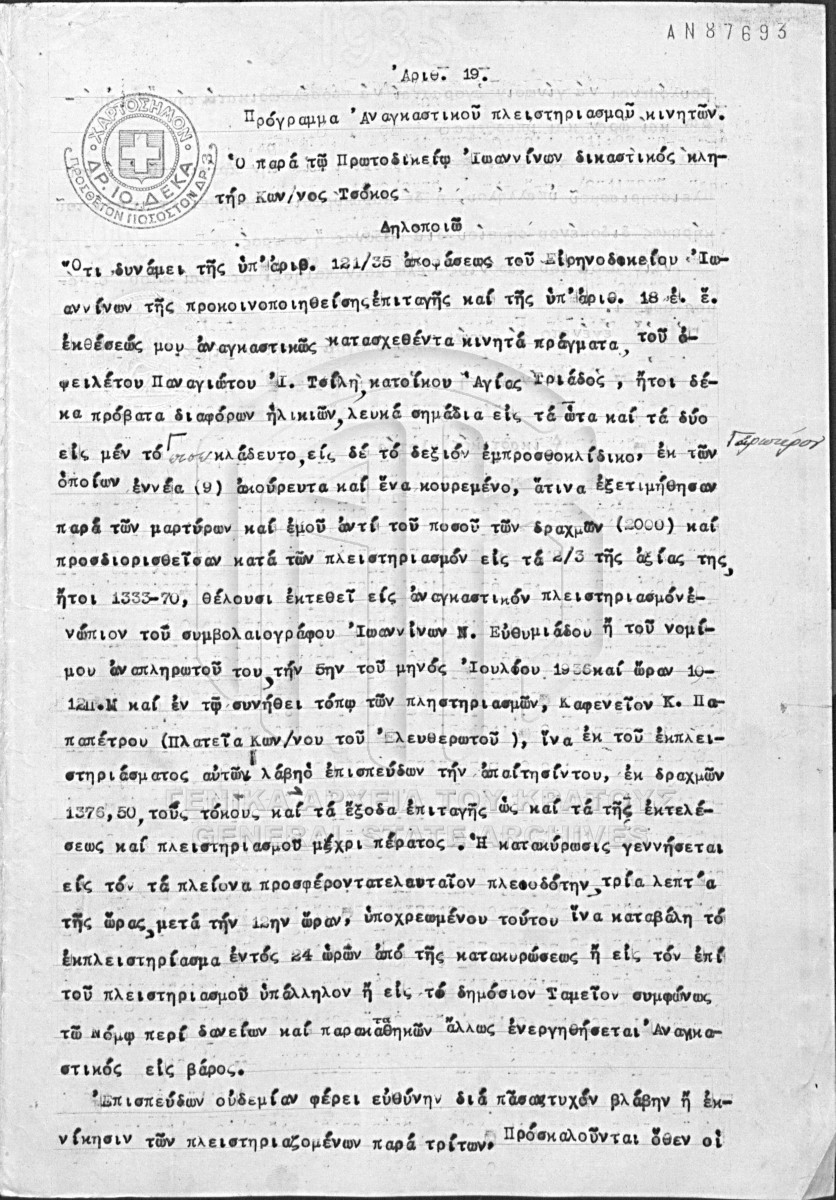 ΑΝ87693
Ἀριθ. 19.
Πρόγραμμα Ἀναγκαστικοῦ πλειστηριασμοῦ κινητῶν.
ΧΑΡΤΟΣΗΜΟΝ
ΔΡ. 10. ΔΕΚΑ
ΠΡΟΣΘΕΤΟΝ ΠΟΣΟΣΤΟΝ ΔΡ. 3
Ὁ παρά τῷ Πρωτοδικείῳ Ἰωαννίνων δικαστικός κλη-
τήρ Κων/νος Τσόκος
Δηλοποιῶ
Ὅτι δυνάμει τῆς ὑπ'ἀριθ. 121/35 ἀποφάσεως τοῦ Εἰρηνοδοκείου Ἰω-
αννίνων τῆς προκοινοποιηθείσης ἐπιταγῆς καί τῆς ὑπ'ἀριθ. 18 ἐ. ἔ.
ἐκθέσεώς μου ἀναγκαστικῶς κατασχεθέντα κινητά πράγματα, τοῦ ὀ-
φειλέτου Παναγιώτου Ἰ. Τσίλη, κατοίκου Ἁγίας Τριάδος, ἤτοι δέ-
κα πρόβατα διαφόρων ἡλικιῶν, λευκά σημάδια εἰς τά ὦτα καί τά δύο
εἰς μέν τό κλάδευτο, εἰς δέ τό δεξιόν ἐμπροσθοκλίδικο, ἐκ τῶν
ὁποίων ἐννέα (9) ἀκούρευτα καί ἕνα κουρεμένο, ἅτινα ἐξετιμήθησαν
παρά τῶν μαρτύρων καί ἐμοῦ ἀντί τοῦ ποσοῦ τῶν δραχμῶν (2000) καί
προσδιορισθεῖσαν κατά τῶν πλειστηριασμόν εἰς τά 2/3 τῆς ἀξίας της,
ἤτοι 1333-70, θέλουσι ἐκτεθεῖ εἰς ἀναγκαστικόν πλειστηριασμόνἐ-
νώπιον τοῦ συμβολαιογράφου Ἰωαννίνων Ν. Εὐθυμιάδου ἤ τοῦ νομί-
μου ἀναπληρωτοῦ του, τήν 5ην τοῦ μηνός Ἰουλίου 1936 καί ὥραν 10-
12π.Μ καί ἐν τῷ συνήθει τόπῳ τῶν πληστηριασμῶν, Καφενεῖον Κ. Πα-
παπέτρου (Πλατεῖα Κων/νου τοῦ Ἐλευθερωτοῦ ), ἵνα ἐκ τοῦ ἐκπλει-
στηριάσματος αὐτῶν λάβῃὁ ἐπισπεύδων τήν ἀπαίτησίντου, ἐκ δραχμῶν
1376,50, τούς τόκους καί τά ἔξοδα ἐπιταγῆς ὡς καί τά τῆς ἐκτελέ-
ΓΕΝΙΚΑ ΑΡΧΕΙΑ ΤΟΥ ΚΡΑΤΟΥΣ
GENERAL STATE ARCHIVES
σεως καί πλειστηριασμοῦ μέχρι πέρατος. Ἡ κατακύρωσις γεννήσεται
εἰς τόν τά πλείονα προσφέροντατελευταῖον πλειοδότην, τρία λεπτ'α
τῆς ὥρας, μετά τήν 12ην ὥραν, ὑποχρεωμένου τούτου ἵνα καταβάλῃ τό
ἐκπλειστηρίασμα ἐντός 24 ὡρῶν ἀπό τῆς κατακυρώσεως ἤ εἰς τόν ἐπί
τοῦ πλειστηριασμοῦ ὑπάλληλον ἤ εἰς τό δημόσιον Ταμεῖον συμφώνως
τῶ Νόμῳ περί δανείων καί παρακαταθηκῶν ἄλλως ἐνεργηθήσεται Ἀναγκα-
στικός εἰς βάρος.
Ἐπισπεύδων οὐδεμίαν φέρει εὐθύνην διά πᾶσαντυχόν βλάβην ἤ ἐκ-
νίκησιν τῶν πλειστηριαζομένων παρά τρίτων. Πρόσκαλοῦνται ὅθεν οἱ